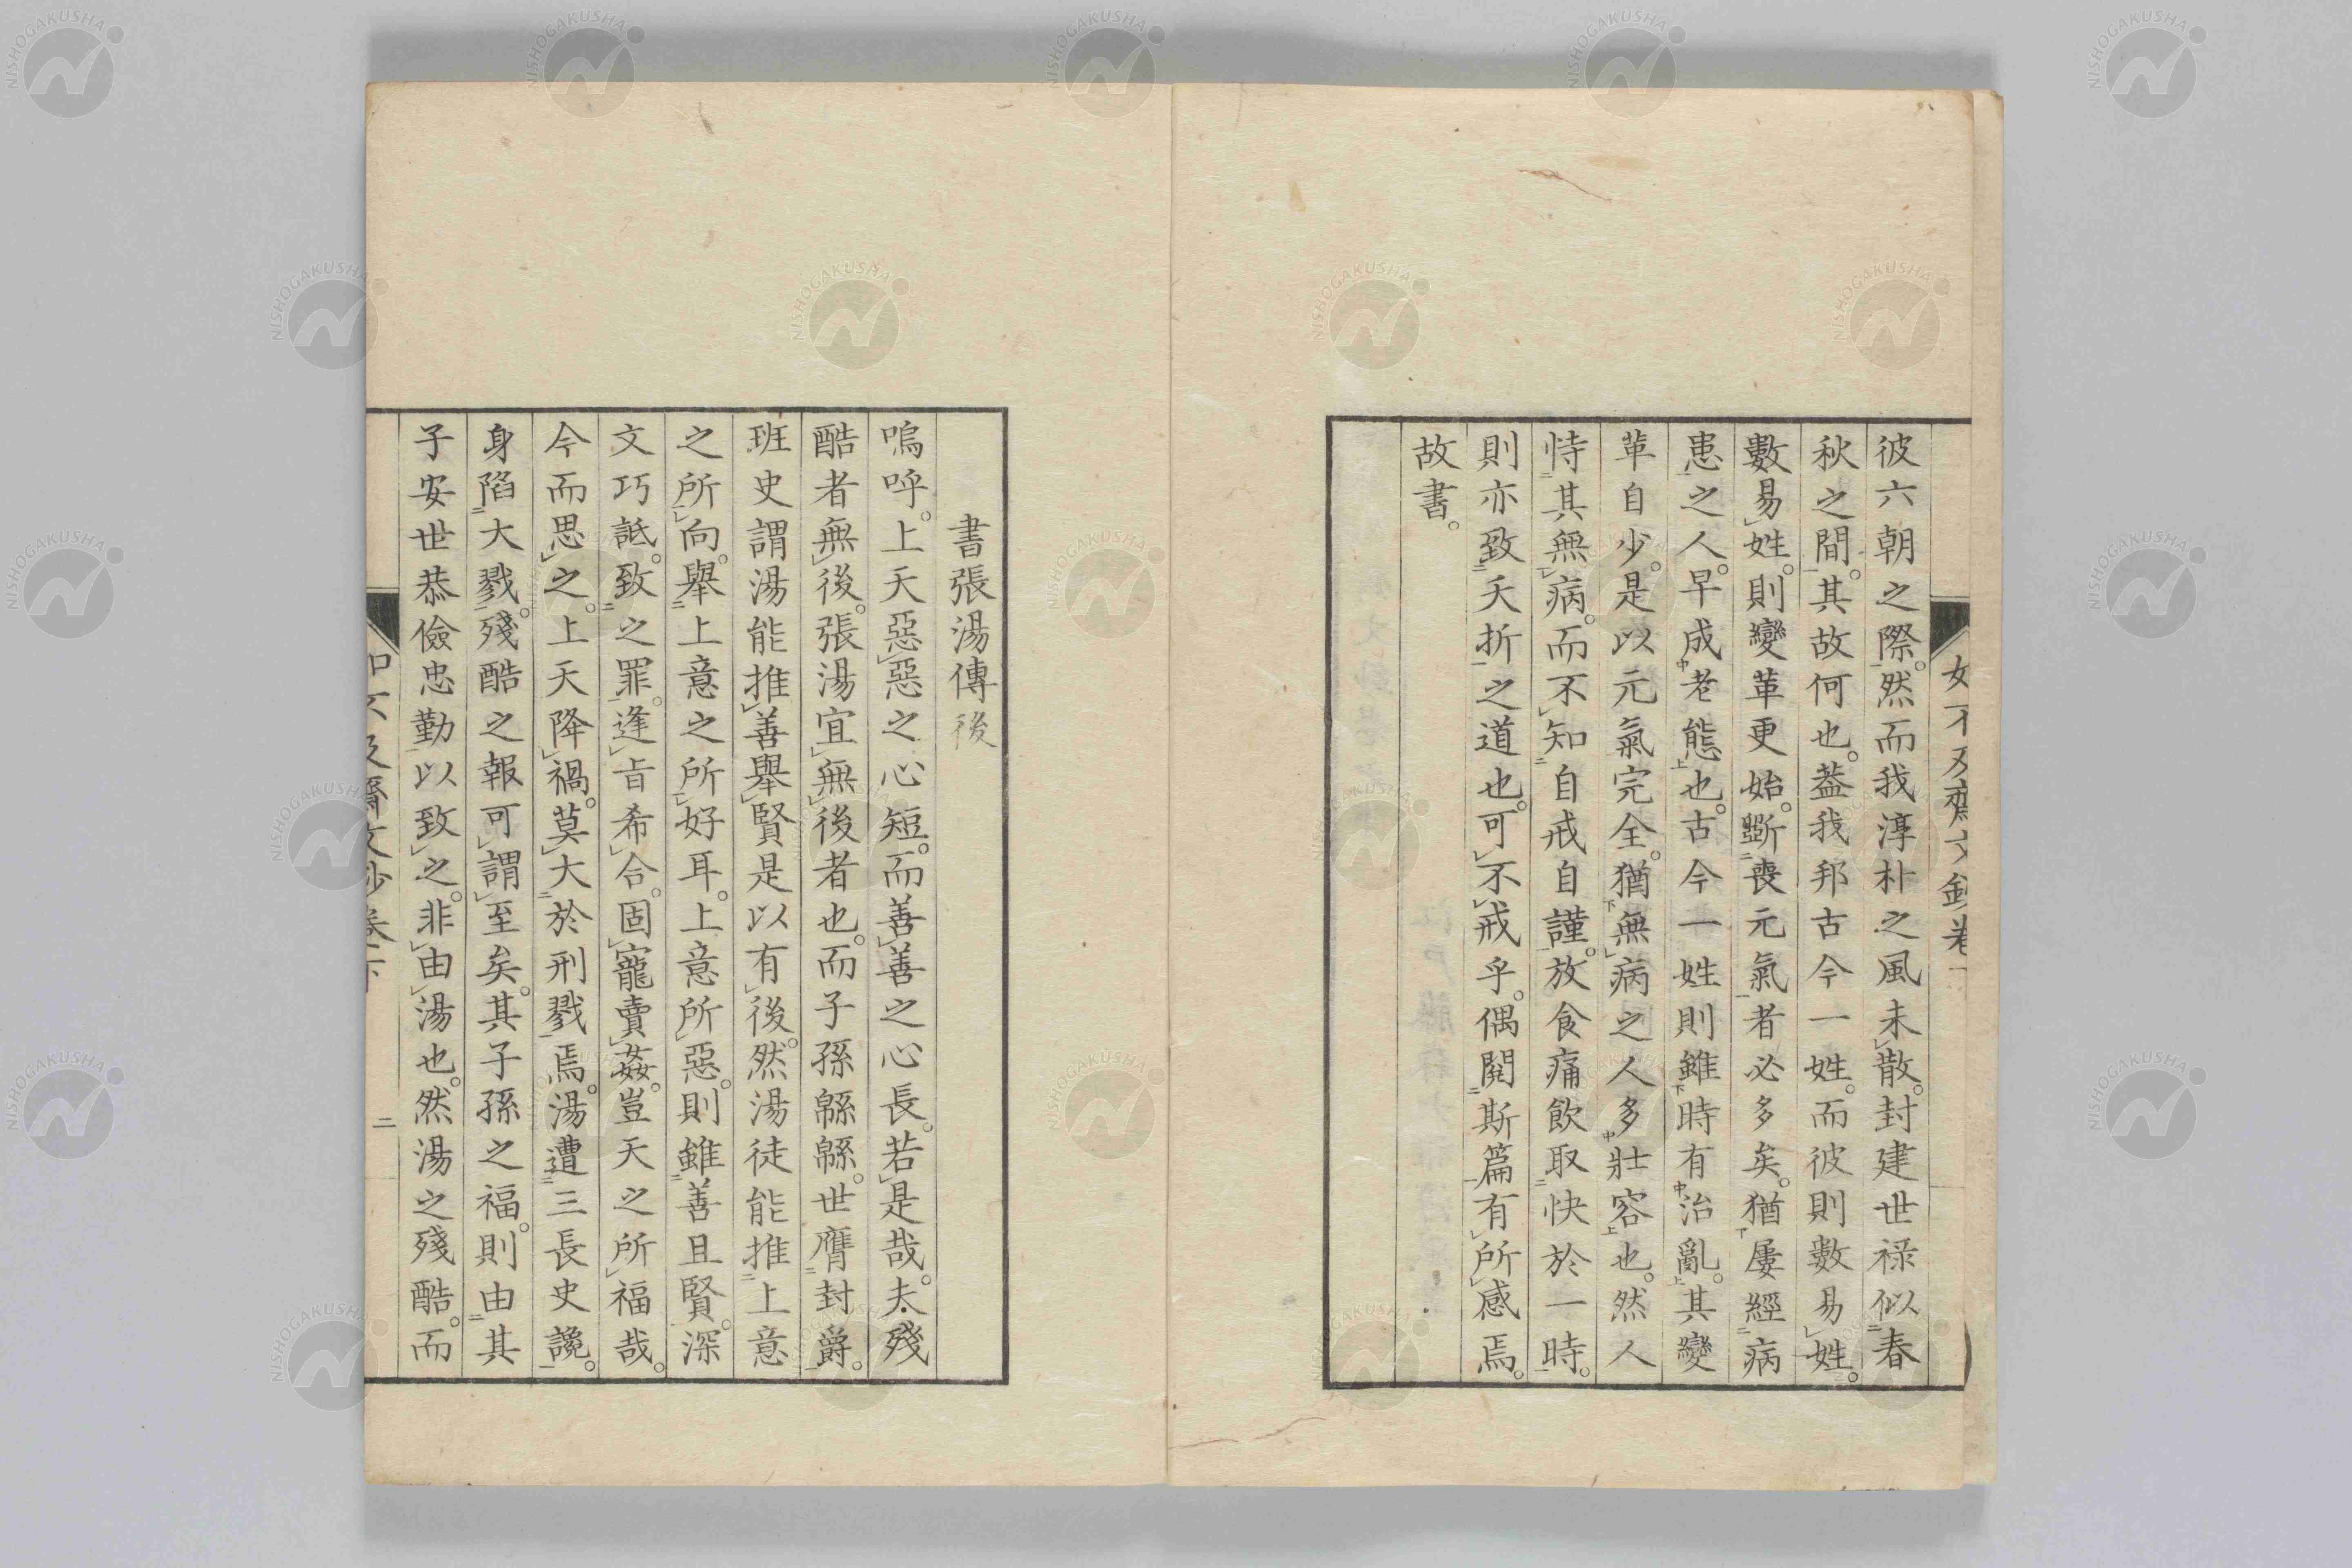 彼六朝之際。然而我淳朴之風未散。封建世祿似春
秋之間。其故何也。蓋我邦古今一姓。而彼則數易姓。
數易姓。則變革更始。斲喪元氣者必多矣。猶屢經病
患之人。早成老態也。古今一姓則雖時有治亂。其變
革自少。是以元氣完全。猶無病之人多壯容也。然人
恃其無病。而不知自戒自謹。放食痛飲取快於一時。
則亦致夭折之道也。可不戒乎。偶閱斯篇有所感焉。
故書。
書張湯傳後
嗚呼。上天惡惡之心短。而善善之心長。若是哉。夫殘
酷者無後。張湯宜無後者也。而子孫緜緜。世膺封爵。
班史謂湯能推善舉賢是以有後。然湯徒能推上意
之所向。舉上意之所好耳。上意所惡。則雖善且賢。深
文巧詆。致之罪。逢旨希合。固寵賣姦。豈天之所福哉。
今而思之。上天降禍。莫大於刑戮焉。湯遭三長史讒。
身陷大戮。殘酷之報可謂至矣。其子孫之福。則由其
子安世恭儉忠勤以致之。非由湯也。然湯之殘酷。而
二
NISHOGAKUSHA